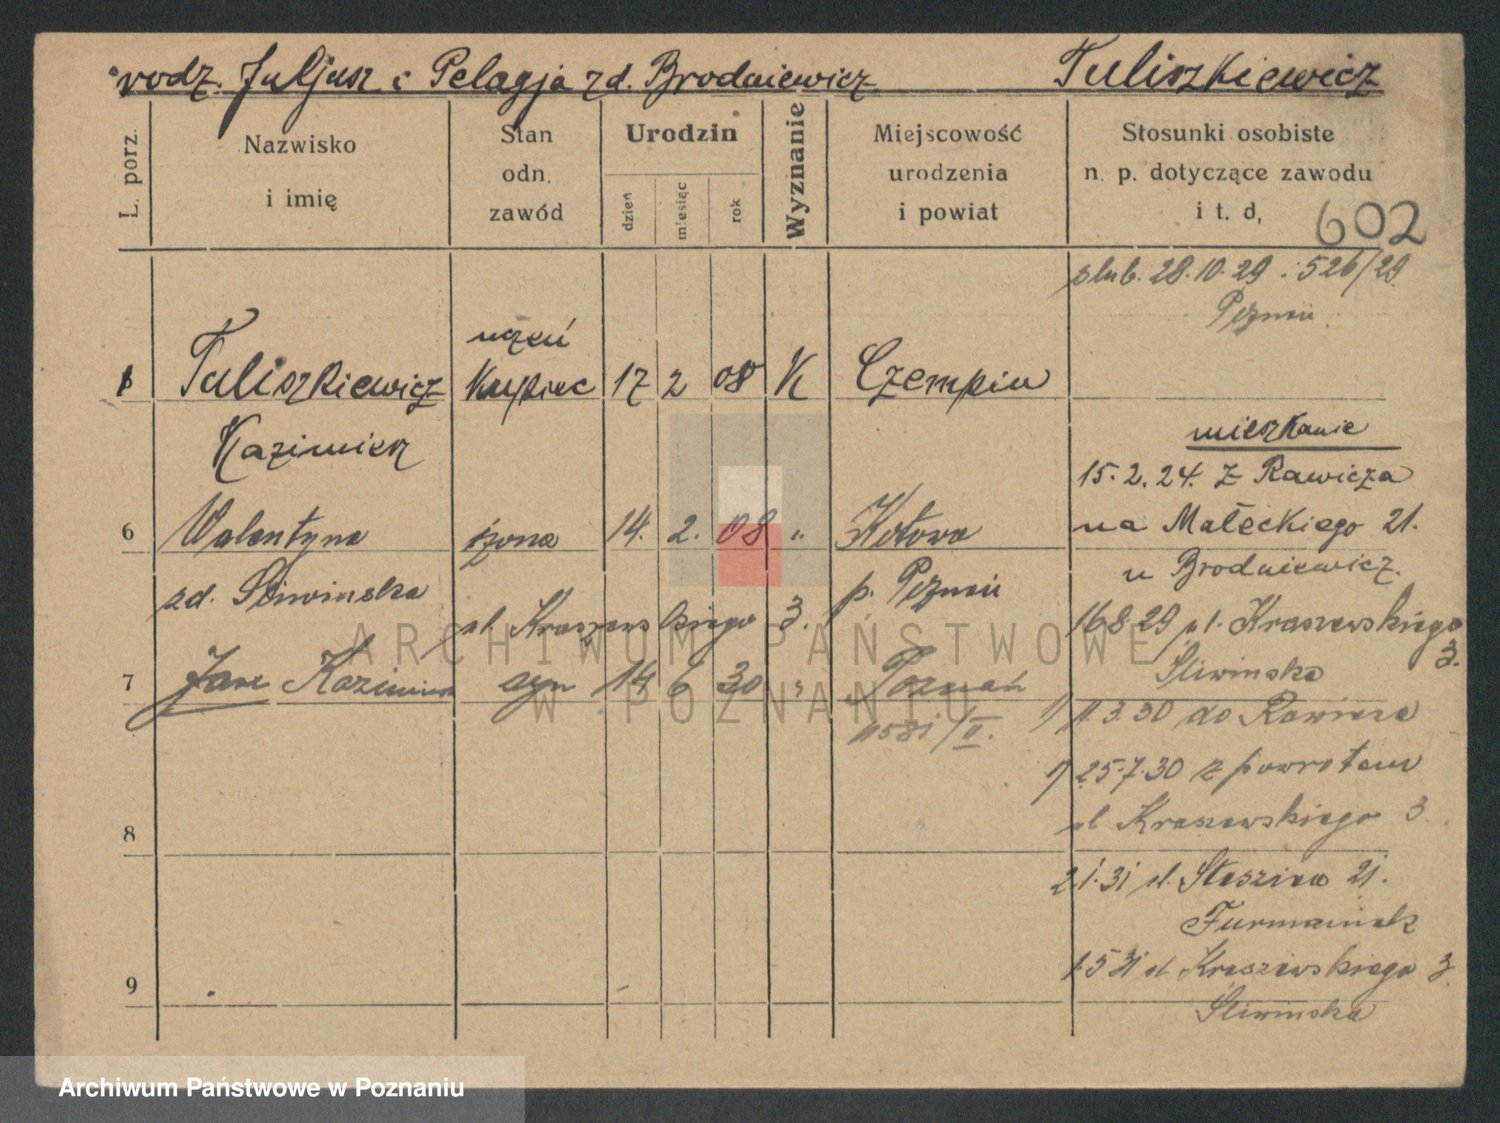 rodz. Juljusz i Pelagja zd. Brodniewicz Tuliszkiewicz
L. porz.
Nazwisko
i imię
Stan
odn.
zawód
Urodzin
dzień
miesiąc
rok
Wyznanie
Miejscowość
urodzenia
i powiat
Stosunki osobiste
n. p. dotyczące zawodu
i t. d,
602
ślub. 28.10.29 . 526/29
Poznań
uczeń
Tuliszkiewicz kupiec 17 2 08 K Czempin
Kazimierz
mieszkanie
15.2.24. z Rawicza
na Małeckiego 21.
u Brodniewicz.
6 Walentyna żona 14. 2. 08 „ Kotowo
zd. Śliwińska p. Poznań
ul. Kraszewskiego 3.
16.8.29 ul. Kraszewskiego
3.
Śliwińska
7 Jan Kazimierz syn 14 6 30 „ Poznań
1581/II.
1) 11.3.30 do Rawicza
1) 25.7.30 z powrotem
ul Kraszewskiego 3.
8
2.1.31 ul. Staszica 21.
Furmaniak
1.5.31 ul Kraszewskiego 3
Śliwińska
9
ARCHIWUM PAŃSTWOWE
W POZNANIU
Archiwum Państwowe w Poznaniu